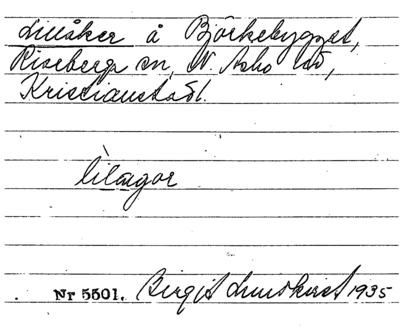 Lillåker å Björkebygget,
Riseberga sn, N. Åsbo hd,
Kristianstads l.
lilagor
Nr 5501. Birgit Lundkvist 1935